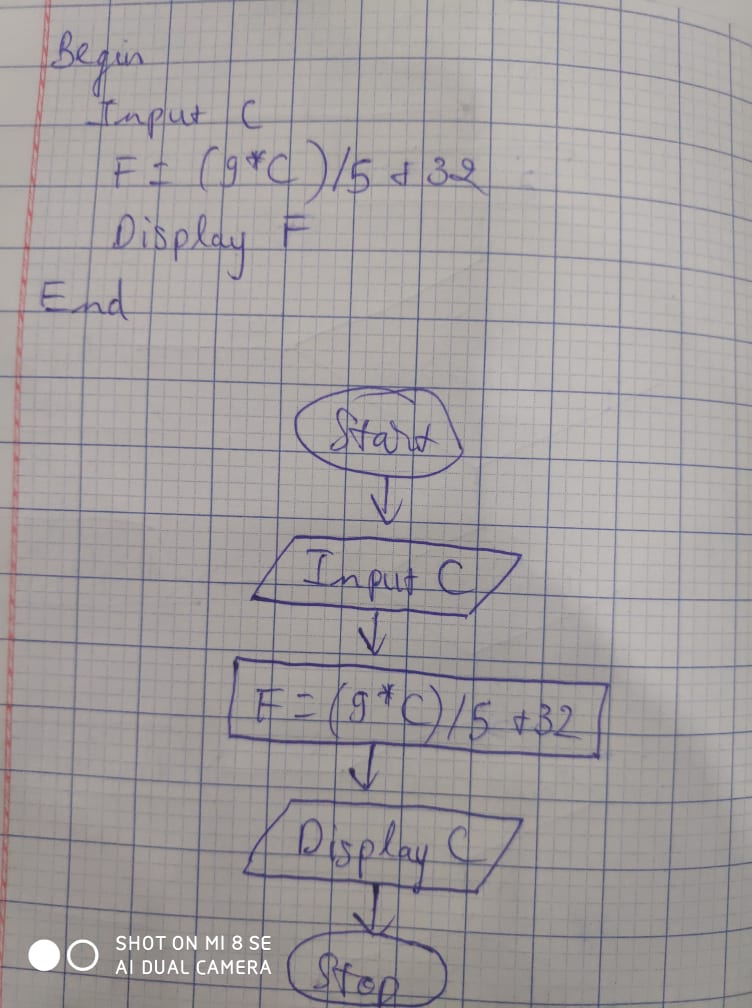 Begin
Input C
F = (9*C)/5 + 32
Display F
End
Start
Input C
F = (9*C)/5 +32
Display C
Stop
SHOT ON MI 8 SE
AI DUAL CAMERA